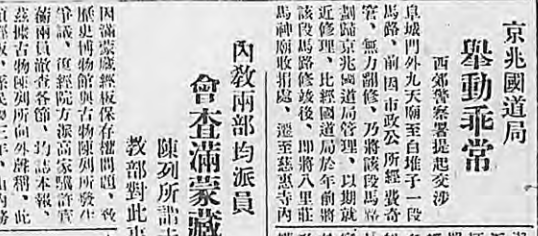 京兆國道局
舉動乖常
西郊警察署提起交涉
阜城門外九天廟至白堆子一段
馬路、前因市政公所經費奇
窘、無力翻修、乃將該段馬路
劃歸京兆國道局管理、以期就
近修理、比經國道局於年前將
該段馬路修竣後、即將八里莊
馬神廟收捐處、遷至慈惠寺內
內教兩部均派員
會查滿蒙藏
陳列所謂
教部對此
因滿蒙藏經板保存權問題、致
歷史博物館與古物陳列所發生
爭議、復經院方派高家驥許寶
兩員澈查各節、均誌本報、
茲據古物陳列所向外聲稱、此